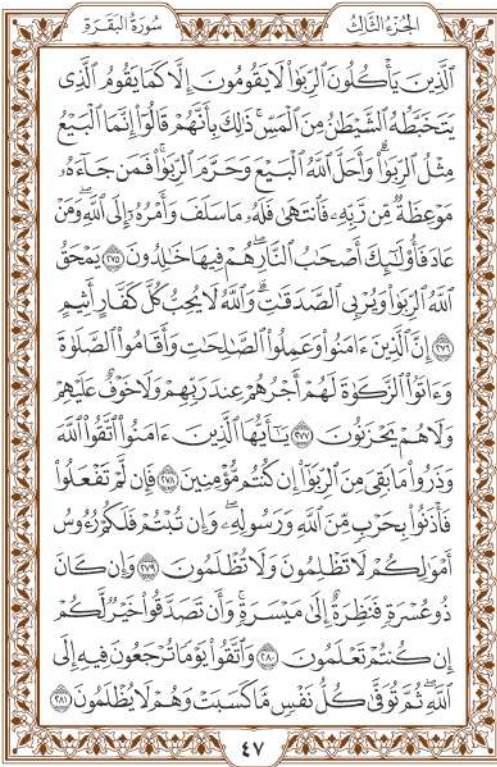 الجُزْءُ الثَّالِثُ سُورَةُ البَقَرَةِ
ٱلَّذِينَ يَأۡكُلُونَ ٱلرِّبَوٰاْ لَا يَقُومُونَ إِلَّا كَمَا يَقُومُ ٱلَّذِي
يَتَخَبَّطُهُ ٱلشَّيۡطَٰنُ مِنَ ٱلۡمَسِّۚ ذَٰلِكَ بِأَنَّهُمۡ قَالُوٓاْ إِنَّمَا ٱلۡبَيۡعُ
مِثۡلُ ٱلرِّبَوٰاْۗ وَأَحَلَّ ٱللَّهُ ٱلۡبَيۡعَ وَحَرَّمَ ٱلرِّبَوٰاْۚ فَمَن جَآءَهُۥ
مَوۡعِظَةٞ مِّن رَّبِّهِۦ فَٱنتَهَىٰ فَلَهُۥ مَا سَلَفَ وَأَمۡرُهُۥٓ إِلَى ٱللَّهِۖ وَمَنۡ
عَادَ فَأُوْلَٰٓئِكَ أَصۡحَٰبُ ٱلنَّارِۖ هُمۡ فِيهَا خَٰلِدُونَ ٢٧٥ يَمۡحَقُ
ٱللَّهُ ٱلرِّبَوٰاْ وَيُرۡبِي ٱلصَّدَقَٰتِۗ وَٱللَّهُ لَا يُحِبُّ كُلَّ كَفَّارٍ أَثِيمٍ
٢٧٦ إِنَّ ٱلَّذِينَ ءَامَنُواْ وَعَمِلُواْ ٱلصَّٰلِحَٰتِ وَأَقَامُواْ ٱلصَّلَوٰةَ
وَءَاتَوُاْ ٱلزَّكَوٰةَ لَهُمۡ أَجۡرُهُمۡ عِندَ رَبِّهِمۡ وَلَا خَوۡفٌ عَلَيۡهِمۡ
وَلَا هُمۡ يَحۡزَنُونَ ٢٧٧ يَٰٓأَيُّهَا ٱلَّذِينَ ءَامَنُواْ ٱتَّقُواْ ٱللَّهَ
وَذَرُواْ مَا بَقِيَ مِنَ ٱلرِّبَوٰٓاْ إِن كُنتُم مُّؤۡمِنِينَ ٢٧٨ فَإِن لَّمۡ تَفۡعَلُواْ
فَأۡذَنُواْ بِحَرۡبٖ مِّنَ ٱللَّهِ وَرَسُولِهِۦۖ وَإِن تُبۡتُمۡ فَلَكُمۡ رُءُوسُ
أَمۡوَٰلِكُمۡ لَا تَظۡلِمُونَ وَلَا تُظۡلَمُونَ ٢٧٩ وَإِن كَانَ
ذُو عُسۡرَةٖ فَنَظِرَةٌ إِلَىٰ مَيۡسَرَةٖۚ وَأَن تَصَدَّقُواْ خَيۡرٞ لَّكُمۡ
إِن كُنتُمۡ تَعۡلَمُونَ ٢٨٠ وَٱتَّقُواْ يَوۡمٗا تُرۡجَعُونَ فِيهِ إِلَى
ٱللَّهِۖ ثُمَّ تُوَفَّىٰ كُلُّ نَفۡسٖ مَّا كَسَبَتۡ وَهُمۡ لَا يُظۡلَمُونَ ٢٨١
٤٧